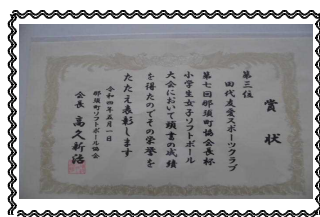 賞状
第三位
田代友愛スポーツクラブ
第七回那須町協会長杯
小学生女子ソフトボール
大会において頭書の成績
を得たのでその栄誉を
たたえ表彰します
令和四年五月一日
那須町ソフトボール協会
会長 高久新治